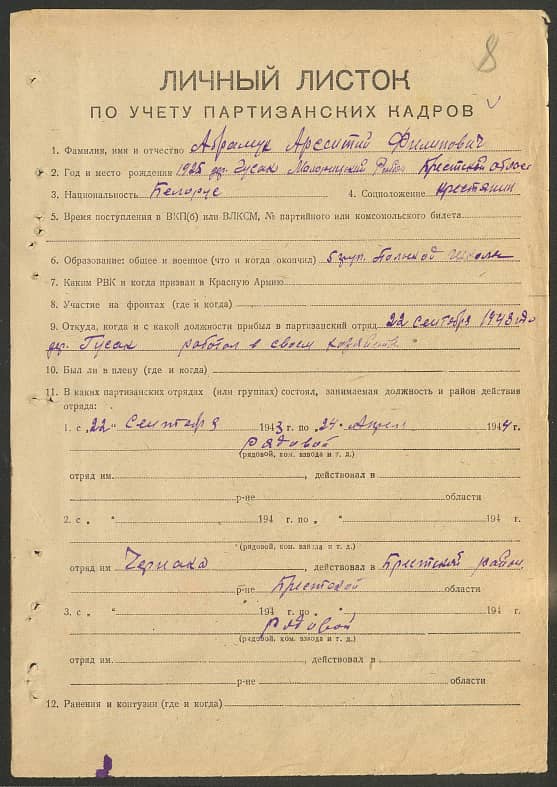 8
ЛИЧНЫЙ ЛИСТОК
ПО УЧЕТУ ПАРТИЗАНСКИХ КАДРОВ
1. Фамилия, имя и отчество Абрамук Филипович
2. Год и место рождения 1925 дер. Гусак Малорицкий Район Брестской област
3. Национальность Белорус 4. Соцположение крестянин
5. Время поступления в ВКП(б) или ВЛКСМ, № партийного или комсомольского билета
6. Образование: общее и военное (что и когда окончил) 5 груп. Польской школы
7. Каким РВК и когда призван в Красную Армию
8. Участие на фронтах (где и когда)
9. Откуда, когда и с какой должности прибыл в партизанский отряд 22 сентября 1943 года
дер. Гусак работал в своем хозяйстве
10. Был ли в плену (где и когда)
11. В каких партизанских отрядах (или группах) состоял, занимаемая должность и район действия
отряда:
1. с „22" Сентября 1943 г. по „24" Апреля 1944 г.
рядовой
(рядовой, ком. взвода и т. д.)
отряд им. , действовал в
р-не области
2. с „ " 194 г. по „ " 194 г.
(рядовой, ком. взвода и т. д.)
отряд им. Чернака , действовал в Брестский район
р-не Брестской области
3. с „ " 194 г. по „ " 194 г.
рядовой
(рядовой, ком. взвода и т. д.)
отряд им. , действовал в
р-не области
12. Ранения и контузии (где и когда)